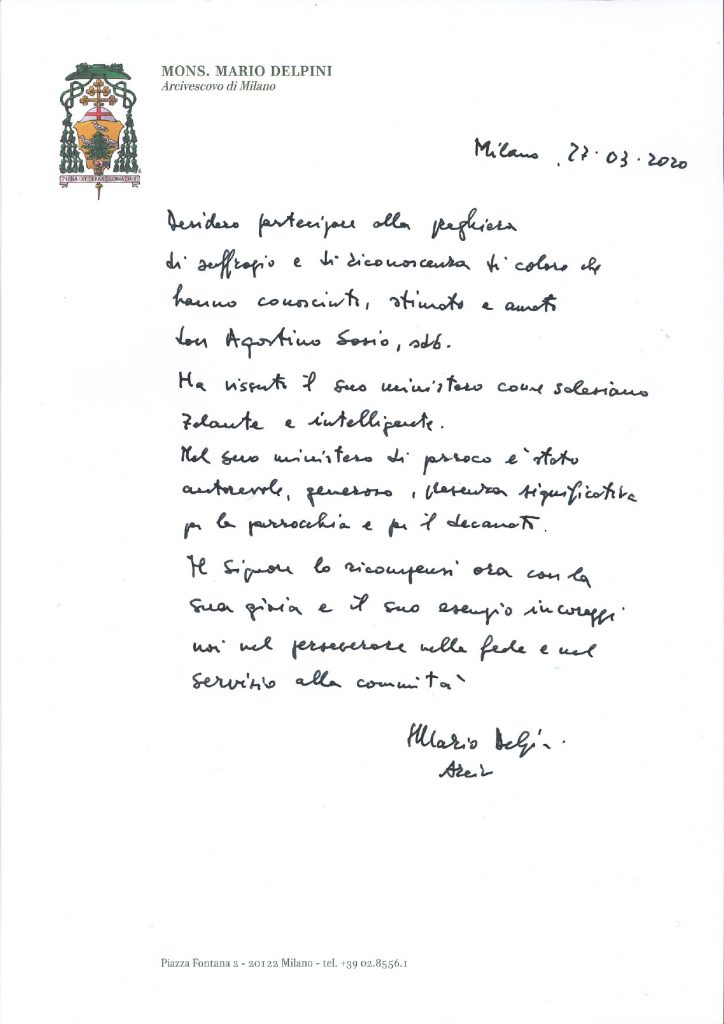 MONS. MARIO DELPINI
Arcivescovo di Milano
PLENA EST TERRA GLORIA EIUS
Milano, 27.03.2020
Desidero partecipare alla preghiera
di suffragio e di riconoscenza di coloro che
hanno conosciuto, stimato e amato
don Agostino Sosio, sdb.
Ha vissuto il suo ministero come salesiano
zelante e intelligente.
Nel suo ministero di parroco è stato
autorevole, generoso, presenza significativa
per la parrocchia e per il decanato.
Il Signore lo ricompensi ora con la
sua gioia e il suo esempio incoraggi
noi nel perseverare nella fede e nel
servizio alla comunità
+ Mario Delpini
Arciv
Piazza Fontana 2 - 20122 Milano - tel. +39 02.8556.1